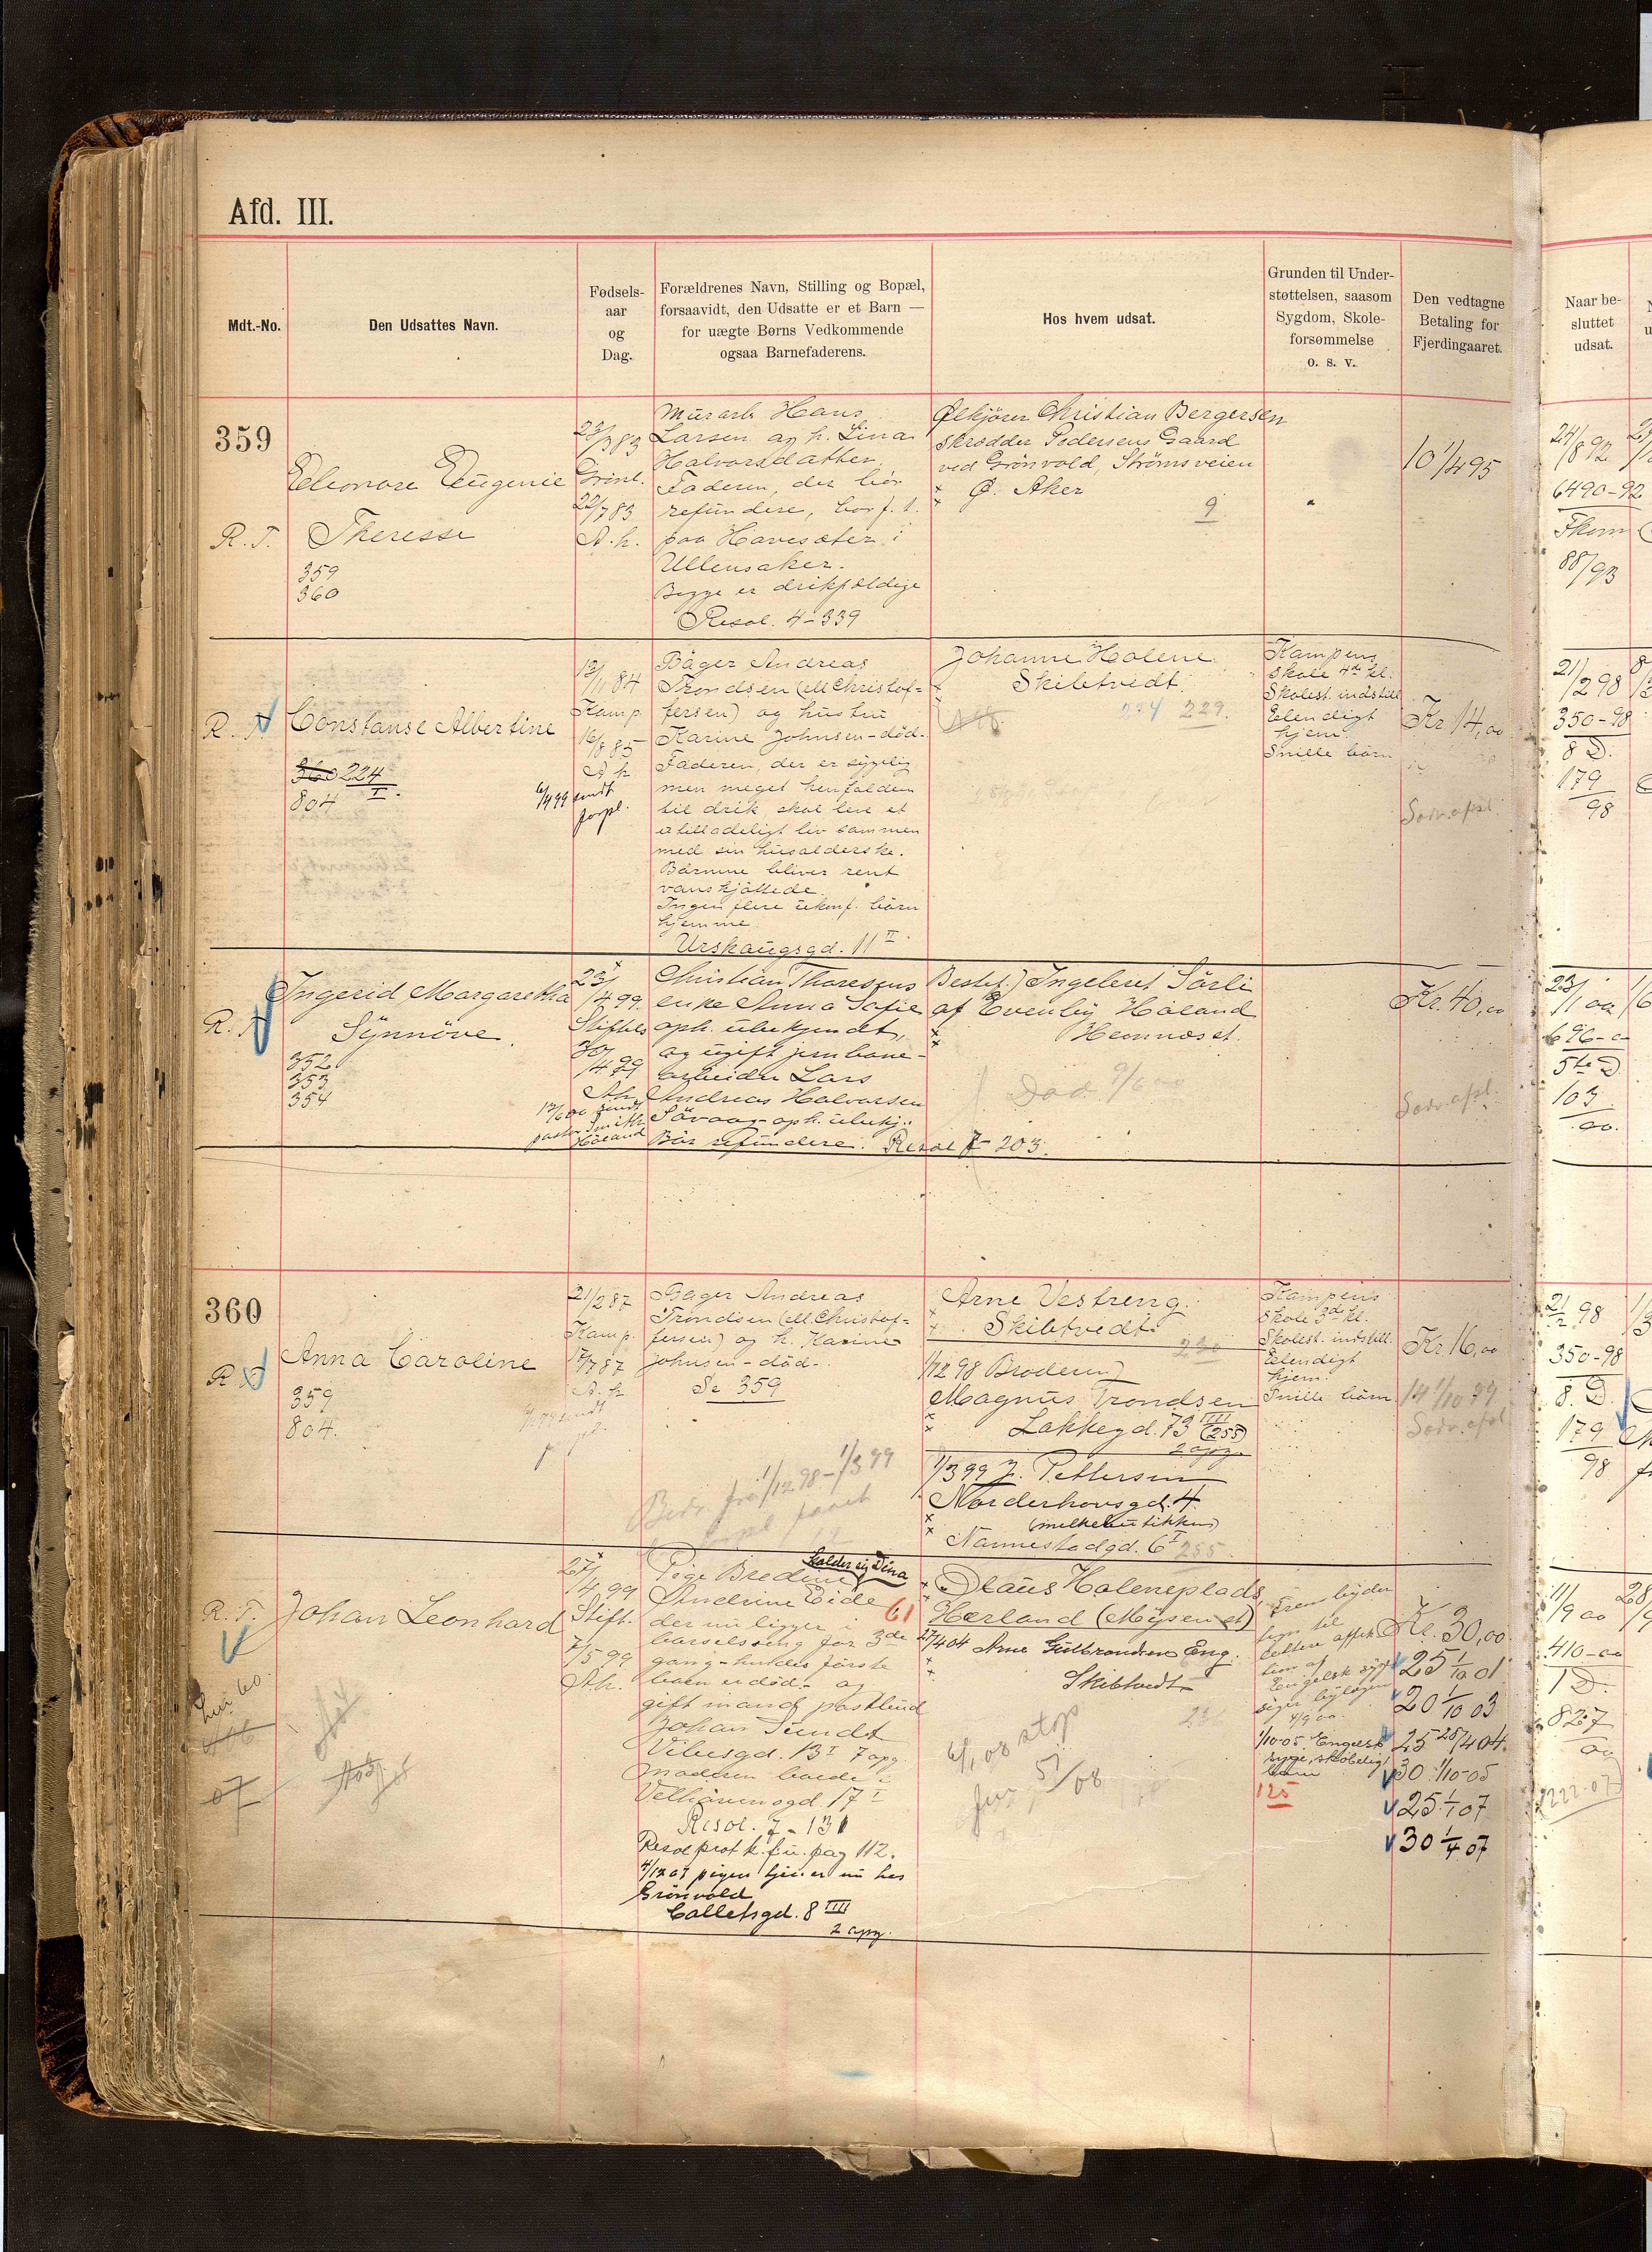 Afd. III.
Mdt.-No.
Den Udsattes Navn.
Fødsels-
aar
og
Dag.
Forældrenes Navn, Stilling og Bopæl,
forsaavidt, den Udsatte er et Barn —
for uægte Børns Vedkommende
ogsaa Barnefaderens.
Hos hvem udsat.
Grunden til Under-
støttelsen, saasom
Sygdom, Skole-
forsømmelse
o. s. v.
Den vedtagne
Betaling for
Fjerdingaaret.
Naar be-
sluttet
udsat.
359
Eleonore Eugenie
R. T. Theresse
359
360
23/3 83
Grønl.
22/7 83
A. h.
Murarb. Hans
Larsen og h. Lina
Halvorsdatter
Faderen, der bør
refundere, bor f. t.
paa Havesæter i
Ullensaker.
Begge er drikfældige
Resol. 4-339
Ølkjører Christian Bergersen
skrædder Pedersens Gaard
ved Grönvold, Strömsveien
Ø. Aker
9
10 1/4 95
24/8 92
6490-92
Fkom
88/93
R. T. Constanse Albertine
360 224
I.
804
12/11 84
Kamp.
16/8 85
A h
6/4 99 sendt
forpl.
Bager Andreas
Trondsen (ell Christof=
fersen) og hustru
Karine Johnsen - död.
Faderen, der er sygelig
men meget henfalden
til drik skal leve et
utilladeligt liv sammen
med sin husolderske.
Børnene bliver rent
vanskjøttede.
Ingen flere ukonf. börn
hjemme
Urskaugsgd. 11 II
Johanne Holene
Skibtvedt.
224 229.
Kampens
skole 4de kl.
Skolest. indstill
Elendigt
hjem
Snille börn
Kr 14,00
21/2 98
350-98
8 D.
179
98
Ingerid Margaretha
R. T. Synnöve.
352
353
354
23/4 99.
Stiftels
30/4 99
Ah.
12/6 00 sendt
pastor Smith
Høland
Christian Thoresens
enke Anna Sofie
oph. ubekjendt,
og ugift jernbane-
arbeider Lars
Andreas Halvorsen
Sövaag - oph. ubekj.
Bör refundere. Resol 7-203.
Bestet.) Ingeleret Sörli
af Evenby Höland
Hemnæs st.
Död 9/6 00
Kr. 40,00
23/1 00
696-00
5te D
103
00.
360
R. T. Anna Caroline
359
804.
21/2 87
Kamp.
17/7 87
A. h
Bager Andreas
Trondsen (ell. Christof-
fersen) og h. Karine
Johnsen - död.
Se 359
1/12 98 - 1/3 99
Arne Vestreng.
Skibtvedt.
230
1/12 98 Broderen)
Magnus Trondsen
Lakkegd. 73 IIII (255)
2 opg.
1/3 99 J. Pettersen
Norderhovsgd. 4.
(melkebutikken)
Nannestadgd. 6 I 255
Kampens
skole 3de kl.
Skolest. indstill.
Elendigt
hjem.
Snille börn
Kr 16,00
14 1/10 99
21/2 98
350-98
8. D.
179
98
R. T. Johan Leonhard
27/4 99
Stift.
7/5 99
A.h.
Pige Bredine
kalder sig Dina
Andrine Eide 61
der nu ligger i
barselseng for 3de
gang - hendes første
barn er död - og
gift mand postbud
Johan Sundt
Vibesgd. 13 I 7 opg.
Moderen boede i
Velhavensgd. 17 I
Resol. 7-131
Resol prot k. f. u. pag 112.
4/12 07 pigen tjener nu hos
Grönvold
Colletsgd. 8 IIII
2 opg.
Olaus Holeneplads
Hærland (Mysen st)
27/4 04 Arne Gulbrandsen Eng.
Skibtvedt
6/1 08 stop
Frembyder
tegn til
lettere affek
tion af
Engelsk syge
siger bylægen
4/9 00.
1/10-05. Engelsk
syge, skröbelig
barn
125
Kr. 30,00.
25 1/10 01
20 1/10 03
25 28/4 04.
30 1/10-05
25 1/1 07
30 1/4 07
11/9 00
410-00
1 D.
827
00
222-07